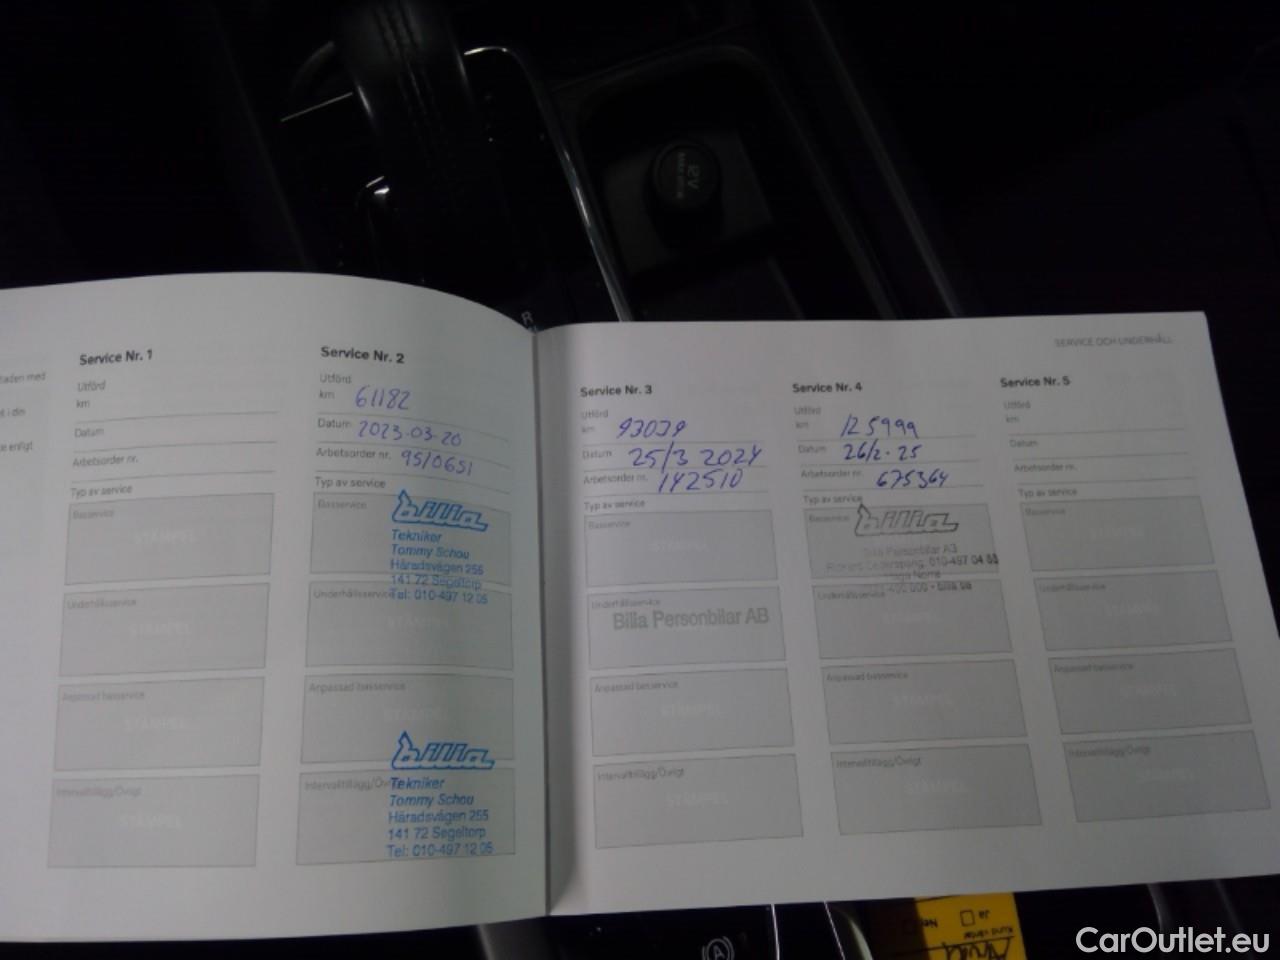 12V
R
SERVICE OCH UNDERHÅLL
taden med
t i din
ce enligt
Service Nr. 1
Utförd
km
Datum
Arbetsorder nr.
Typ av service
Basservice
STÄMPEL
Underhållsservice
STÄMPEL
Anpassad basservice
STÄMPEL
Intervalltillägg/Övrigt
STÄMPEL
Service Nr. 2
Utförd
km 61182
Datum 2023-03-20
Arbetsorder nr. 9510651
Typ av service
Basservice
bilia
Tekniker
Tommy Schou
Häradsvägen 255
141 72 Segeltorp
Tel: 010-497 12 05
Underhållsservice
STÄMPEL
Anpassad basservice
STÄMPEL
Intervalltillägg/Övrigt
bilia
Tekniker
Tommy Schou
Häradsvägen 255
141 72 Segeltorp
Tel: 010-497 12 05
Service Nr. 3
Utförd
km 93039
Datum 25/3 2024
Arbetsorder nr. 142510
Typ av service
Basservice
STÄMPEL
Underhållsservice
Bilia Personbilar AB
Anpassad basservice
STÄMPEL
Intervalltillägg/Övrigt
STÄMPEL
Service Nr. 4
Utförd
km 125999
Datum 26/2-25
Arbetsorder nr. 675364
Typ av service
Basservice
bilia
Bilia Personbilar AB
010-497 04 83
400 000 - bilia.se
Underhållsservice
STÄMPEL
Anpassad basservice
STÄMPEL
Intervalltillägg/Övrigt
STÄMPEL
Service Nr. 5
Utförd
km
Datum
Arbetsorder nr.
Typ av service
Basservice
STÄMPEL
Underhållsservice
STÄMPEL
Anpassad basservice
STÄMPEL
Intervalltillägg/Övrigt
STÄMPEL
(A)
Kund väntar
Ja
Nej
CarOutlet.eu